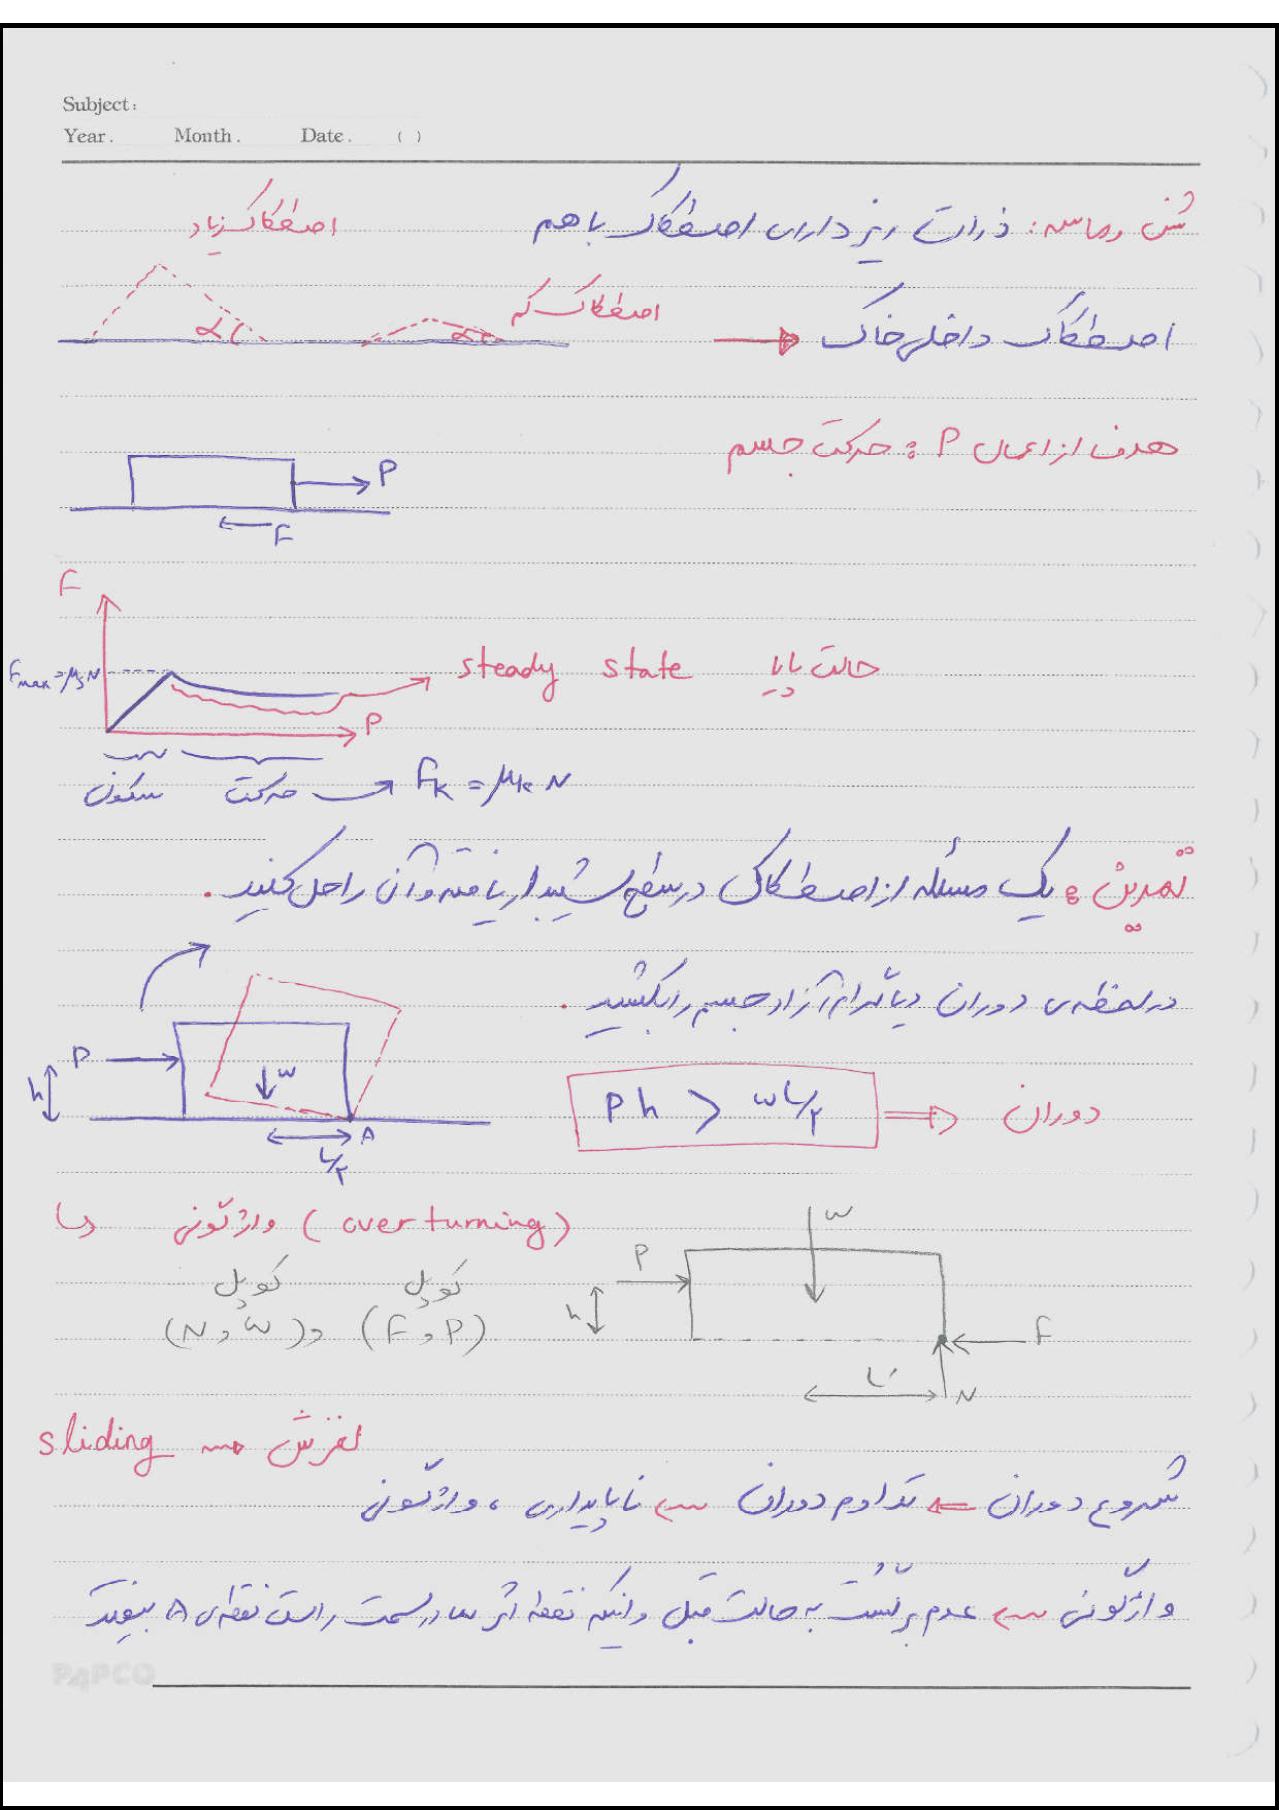 Subject:
Year. Month. Date. ( )
شن و ماسه: ذرات ریز دارای اصطکاک با هم
اصطکاک زیاد
اصطکاک داخلی خاک
اصطکاک کم
α
α
هدف از اعمال P : حرکت جسم
P
F
F
Fmax = μs N
steady state حالت پایا
P
سکون حرکت Fk = μk N
تمرین : یک مسئله از اصطکاک در سطح شیبدار یافته و آن را حل کنید.
در لحظه‌ی دوران دیاگرام آزاد جسم را بکشید.
P
h
w
A
L/۲
Ph > wL/۲ ⇒ دوران
واژگونی (overturning)
کوپل (F و P) و کوپل (N و w)
P
w
h
F
L'
N
sliding → لغزش
شروع دوران ← تداوم دوران ← ناپایداری ، واژگونی
واژگونی ← عدم برگشت به حالت قبل و اینکه نقطه اثر w در سمت راست نقطه‌ی A بیفتد
PAPCO